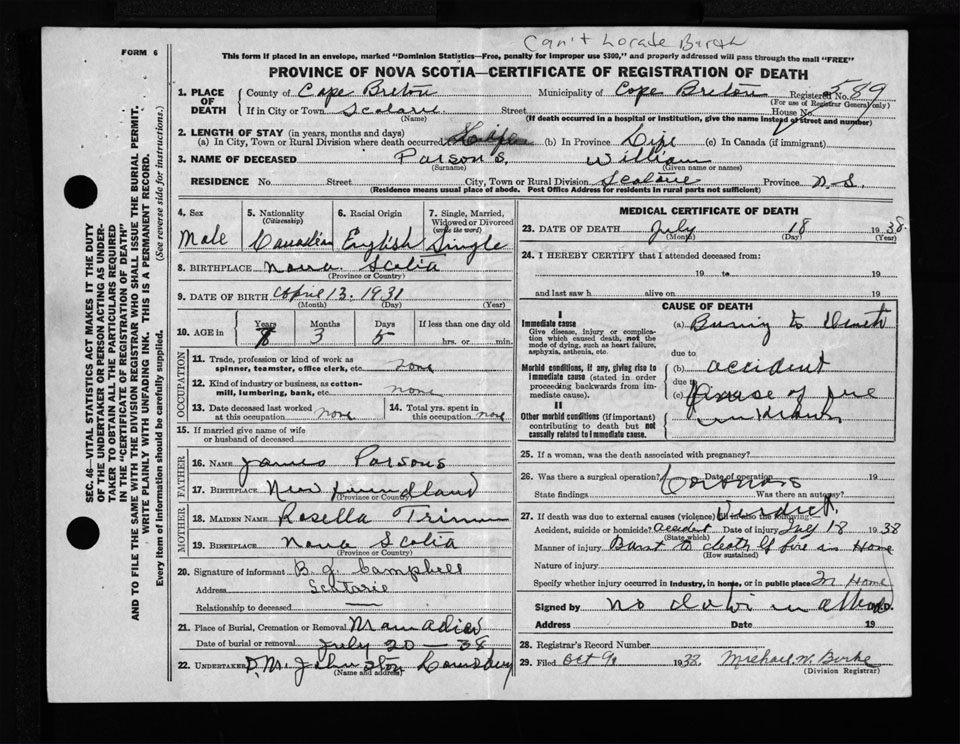 Can't Locate Birth
FORM 6
This form if placed in an envelope, marked "Dominion Statistics—Free, penalty for improper use $300," and properly addressed will pass through the mail "FREE"
PROVINCE OF NOVA SCOTIA—CERTIFICATE OF REGISTRATION OF DEATH
1. PLACE OF DEATH County of Cape Breton Municipality of Cape Breton Registered No. 589
(For use of Registrar General only)
If in City or Town Scatarie Street House No.
(Name) (If death occurred in a hospital or institution, give the name instead of street and number)
2. LENGTH OF STAY (in years, months and days)
(a) In City, Town or Rural Division where death occurred Life (b) In Province Life (c) In Canada (if immigrant)
3. NAME OF DECEASED Parsons, William
(Surname) (Given name or names)
RESIDENCE No. Street City, Town or Rural Division Scatarie Province N.S.
(Residence means usual place of abode. Post Office Address for residents in rural parts not sufficient)
4. Sex 5. Nationality (Citizenship) 6. Racial Origin 7. Single, Married, Widowed or Divorced (write the word)
Male Canadian English Single
8. BIRTHPLACE Nova Scotia
(Province or Country)
9. DATE OF BIRTH April 13, 1931
(Month) (Day) (Year)
10. AGE in Years Months Days If less than one day old
3 5 hrs. or min.
OCCUPATION
11. Trade, profession or kind of work as spinner, teamster, office clerk, etc. none
12. Kind of industry or business, as cotton-mill, lumbering, bank, etc. none
13. Date deceased last worked at this occupation none 14. Total yrs. spent in this occupation none
15. If married give name of wife or husband of deceased
FATHER
16. NAME James Parsons
17. BIRTHPLACE Newfoundland
(Province or Country)
MOTHER
18. MAIDEN NAME Rosella Trimm
19. BIRTHPLACE Nova Scotia
(Province or Country)
20. Signature of informant B. J. Campbell
Address Scatarie
Relationship to deceased
21. Place of Burial, Cremation or Removal Mainadieu
Date of burial or removal July 20 - 38
22. UNDERTAKER D. M. Johnston Louisburg
(Name and address)
MEDICAL CERTIFICATE OF DEATH
23. DATE OF DEATH July 18 1938
(Month) (Day) (Year)
24. I HEREBY CERTIFY that I attended deceased from:
19 to 19
and last saw h alive on 19
CAUSE OF DEATH
I
Immediate cause
Give disease, injury or complication which caused death, not the mode of dying, such as heart failure, asphyxia, asthenia, etc.
(a) Burning to Death
due to
Morbid conditions, if any, giving rise to immediate cause (stated in order proceeding backwards from immediate cause).
(b) accident
due to
(c) fire
II
Other morbid conditions (if important) contributing to death but not causally related to immediate cause.
25. If a woman, was the death associated with pregnancy?
26. Was there a surgical operation? Date of operation 19
State findings Was there an autopsy?
Coroners Verdict
27. If death was due to external causes (violence) fill in also the following:
Accident, suicide or homicide? Accident Date of injury July 18 1938
(State which)
Manner of injury Burnt to death by fire in Home
(How sustained)
Nature of injury
Specify whether injury occurred in industry, in home, or in public place In Home
Signed by no doctor in attend M.D.
Address Date 19
28. Registrar's Record Number
29. Filed Oct 9 1938 Michael W. Burke
(Division Registrar)
SEC. 46—VITAL STATISTICS ACT MAKES IT THE DUTY
OF THE UNDERTAKER OR PERSON ACTING AS UNDER-
TAKER TO OBTAIN ALL THE PARTICULARS REQUIRED
IN THE "CERTIFICATE OF REGISTRATION OF DEATH"
AND TO FILE THE SAME WITH THE DIVISION REGISTRAR WHO SHALL ISSUE THE BURIAL PERMIT.
WRITE PLAINLY WITH UNFADING INK. THIS IS A PERMANENT RECORD.
Every item of information should be carefully supplied. (See reverse side for instructions.)